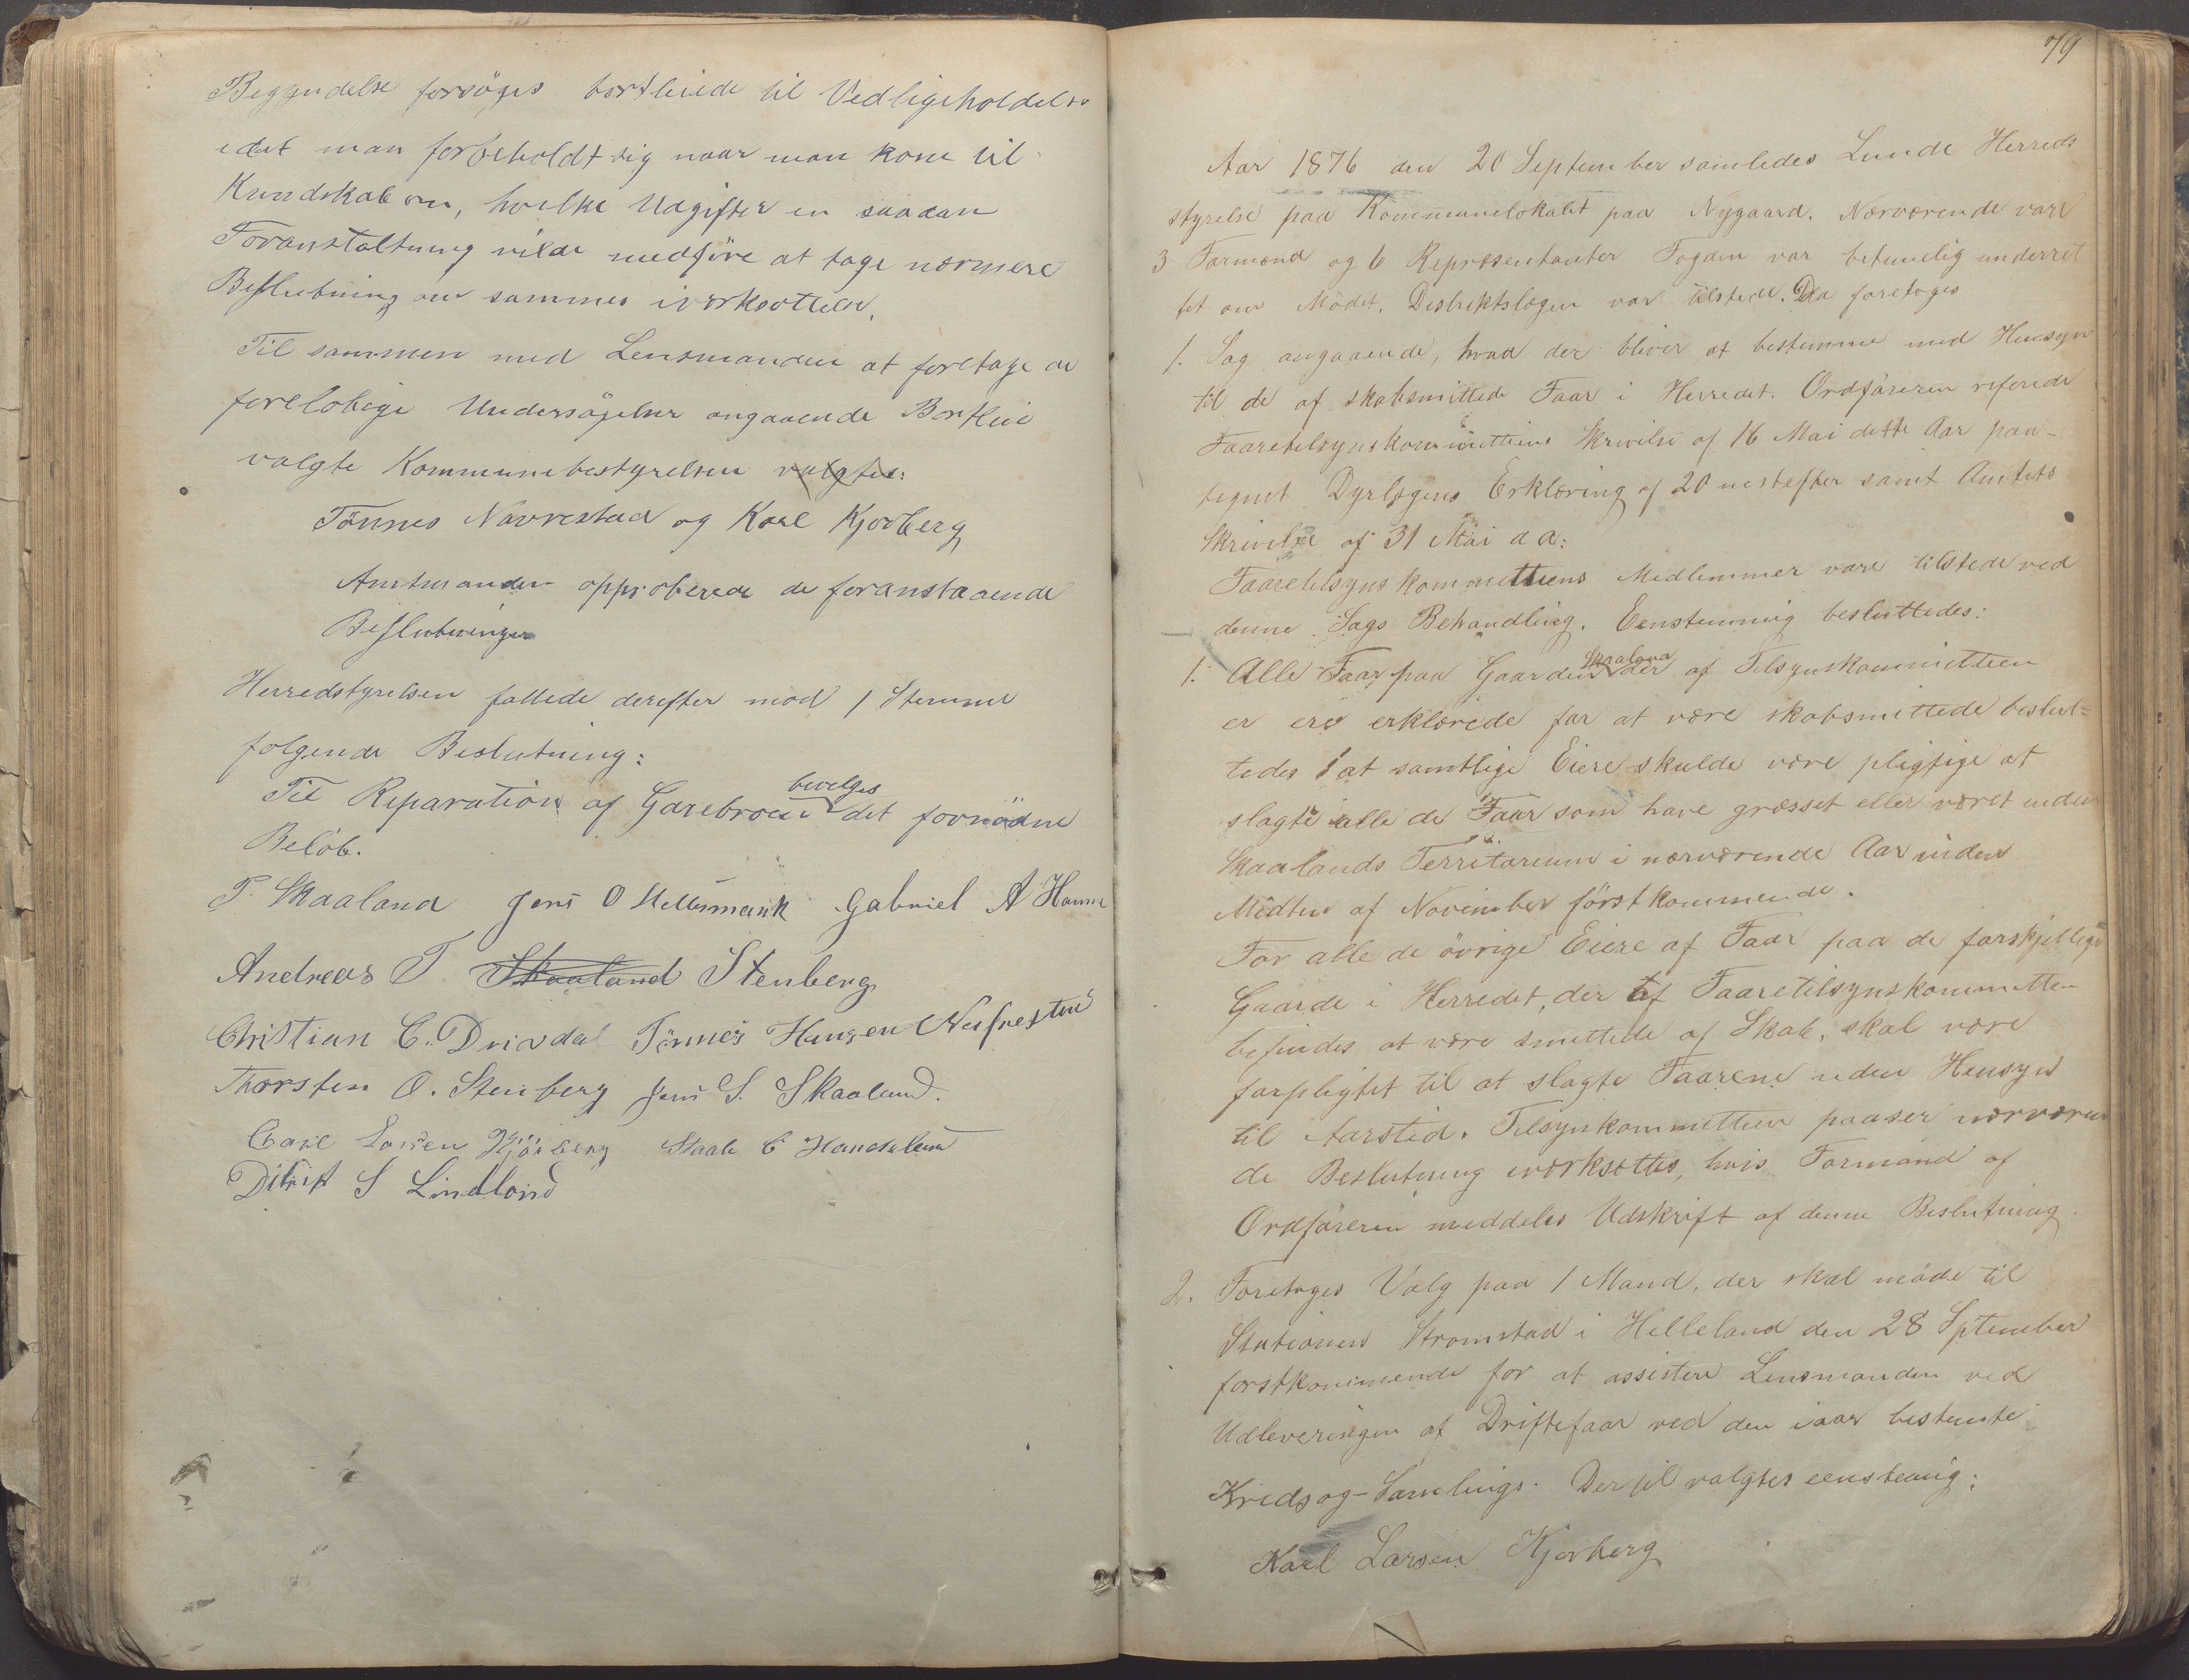 Begyndelse forsöges bortleiede til Vedligeholdelse
idet man forbeholdt sig naar man kom til
Kundskab om, hvilke Udgifter en saadan
Foranstaltning vilde medføre at tage nærmere
Beslutning om sammes iværksættelse.
Til sammen med Lensmanden at foretage de
foreløbige Undersøgelser angaaende Bortleie
valgte Kommunebestyrelsen valgtes:
Tönnes Navrestad og Karl Kjørberg
Amtmanden approberede de foranstaaende
Beslutninger
Herredstyrelsen fattede derefter mod 1 Stemme
følgende Beslutning:
Til Reparation af Garebroen bevilges det fornødne
Beløb.
T. Skaaland Jens O Mellumank Gabriel A Hamre
Andreas T. Skaaland Stenberg
Christian C. Drivdal Tönnes Hansen
Thorsten O. Stenberg Jens S. Skaaland.
Carl Larsen Kjörberg Staale C
Ditrik S Lindland
79
Aar 1876 den 20 September samledes Lunde Herreds
styrelse paa Kommunelokalet paa Nygaard. Nærværende vare
3 Formænd og 6 Repræsentanter Fogden var betimelig underret
tet om Mødet. Destriktslægen var tilstede. Da foretoges
1. Sag angaaende, hvad der bliver at bestemme med Hensyn
til de af skabsmittede Faar i Herredet. Ordføreren refererede
Faaretilsynskommitteens Skrivelse af 16 Mai dette Aar paa-
tegnet Dyrlægens Erklæring af 20 nestefter samt Amtets
Skrivelse af 31 Mai a a:
Faaretilsynskommitteens Medlemmer vare tilstede ved
denne Sags Behandling. Eenstemmig besluttedes:
1. Alle Faar paa Gaarden Skaaland der af Tilsynskommitteen
er ere erklærede for at være skabsmittede beslut-
tedes at samtlige Eiere skulde være pligtige at
slagte alle de Faar som have græsset eller været inden
Skaalands Territorium i nærværende Aar inden
Midten af November förstkommende.
For alle de øvrige Eiere af Faar paa de forskjellige
Gaarde i Herredet, der af Faaretilsynskommitteen
befindes at være smittede af Skab, skal være
forpligtet til at slagte Faarene uden Hensyn
til Aarstid. Tilsynkommitteen paaser nærværen
de Beslutning iværksættes, hvis Formand af
Ordføreren meddeles Udskrift af denne Beslutning.
2. Foretoges Valg paa 1 Mand, der skal møde til
Stationen Stromstad i Helleland den 28 Sptember
forstkommende for at assistere Lensmanden ved
Udleveringen af Driftefaar ved den iaar bestemte
Kreds og-Samlings. Der til valgtes eenstemig:
Karl Larsen Kjørberg